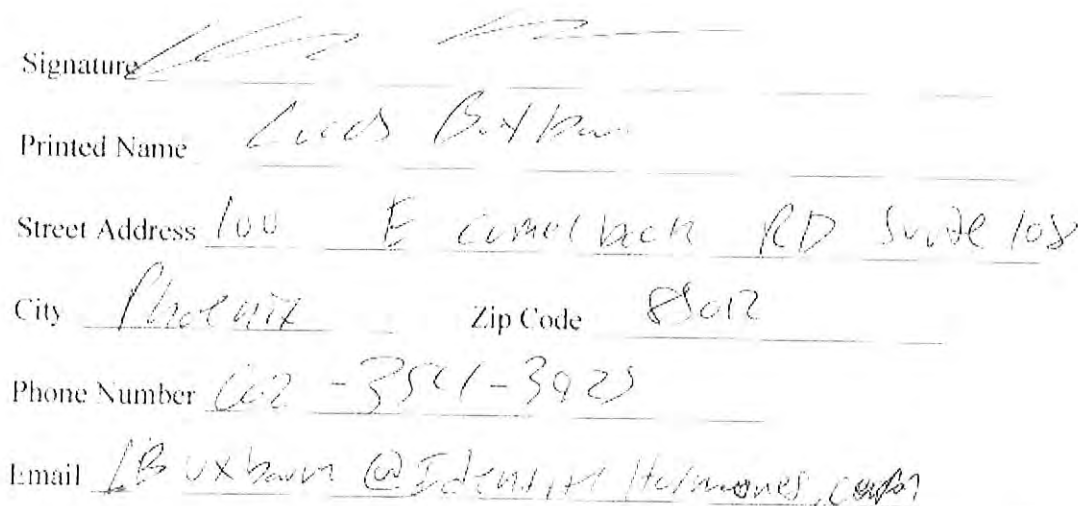 Signature
Printed Name Lucas Buxbaum
Street Address 100 E camelback RD Suite 108
City Phoenix Zip Code 85012
Phone Number 602-354-3925
Email LBuxbaum@